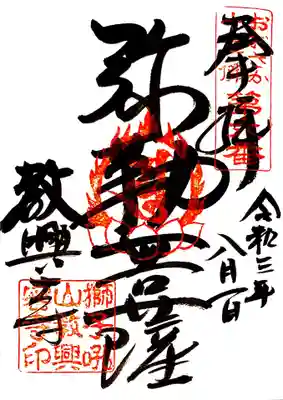 奉拝
令和三年
八月一日
弥勒菩薩
教興寺
獅子吼
山教興
寺印